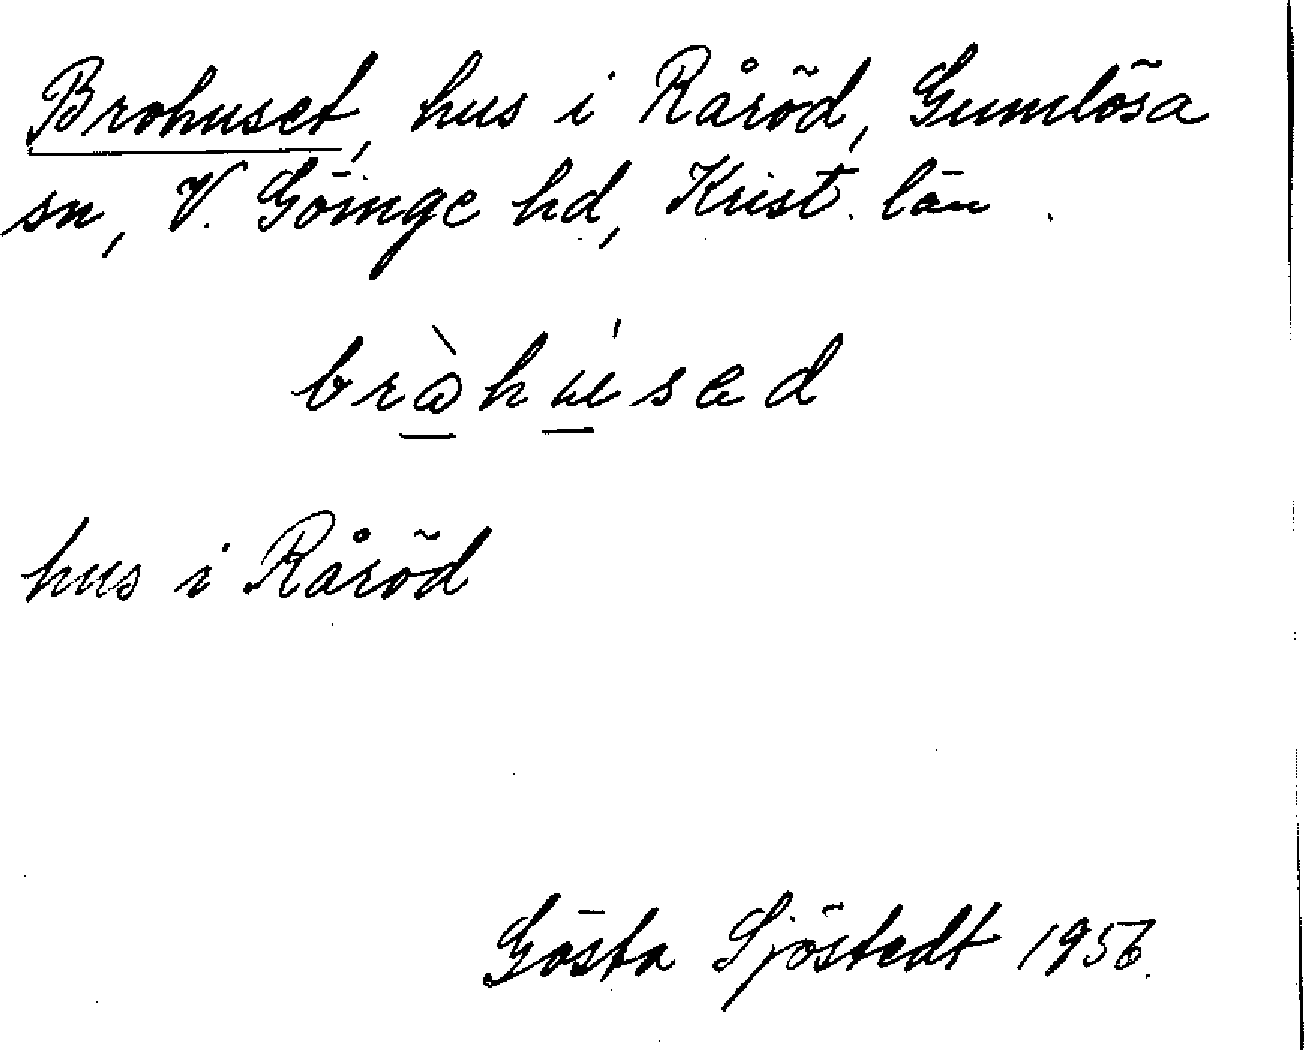 Brohuset, hus i Råröd, Gumlösa
sn, V. Göinge hd, Krist. län.
hus i Råröd
Gösta Sjöstedt 1956.